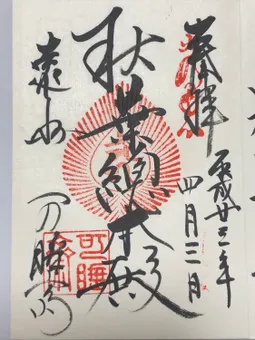 奉拝
平成廿三年
四月三日
秋葉總本殿
遠州
可睡斎